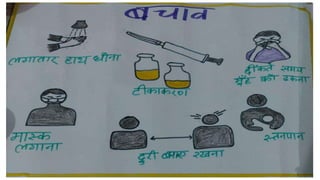 बचाव
लगातार हाथ धोना
टीकाकरण
छींकते समय
मुँह को ढकना
मास्क
लगाना
दुरी बनाए रखना
स्तनपान